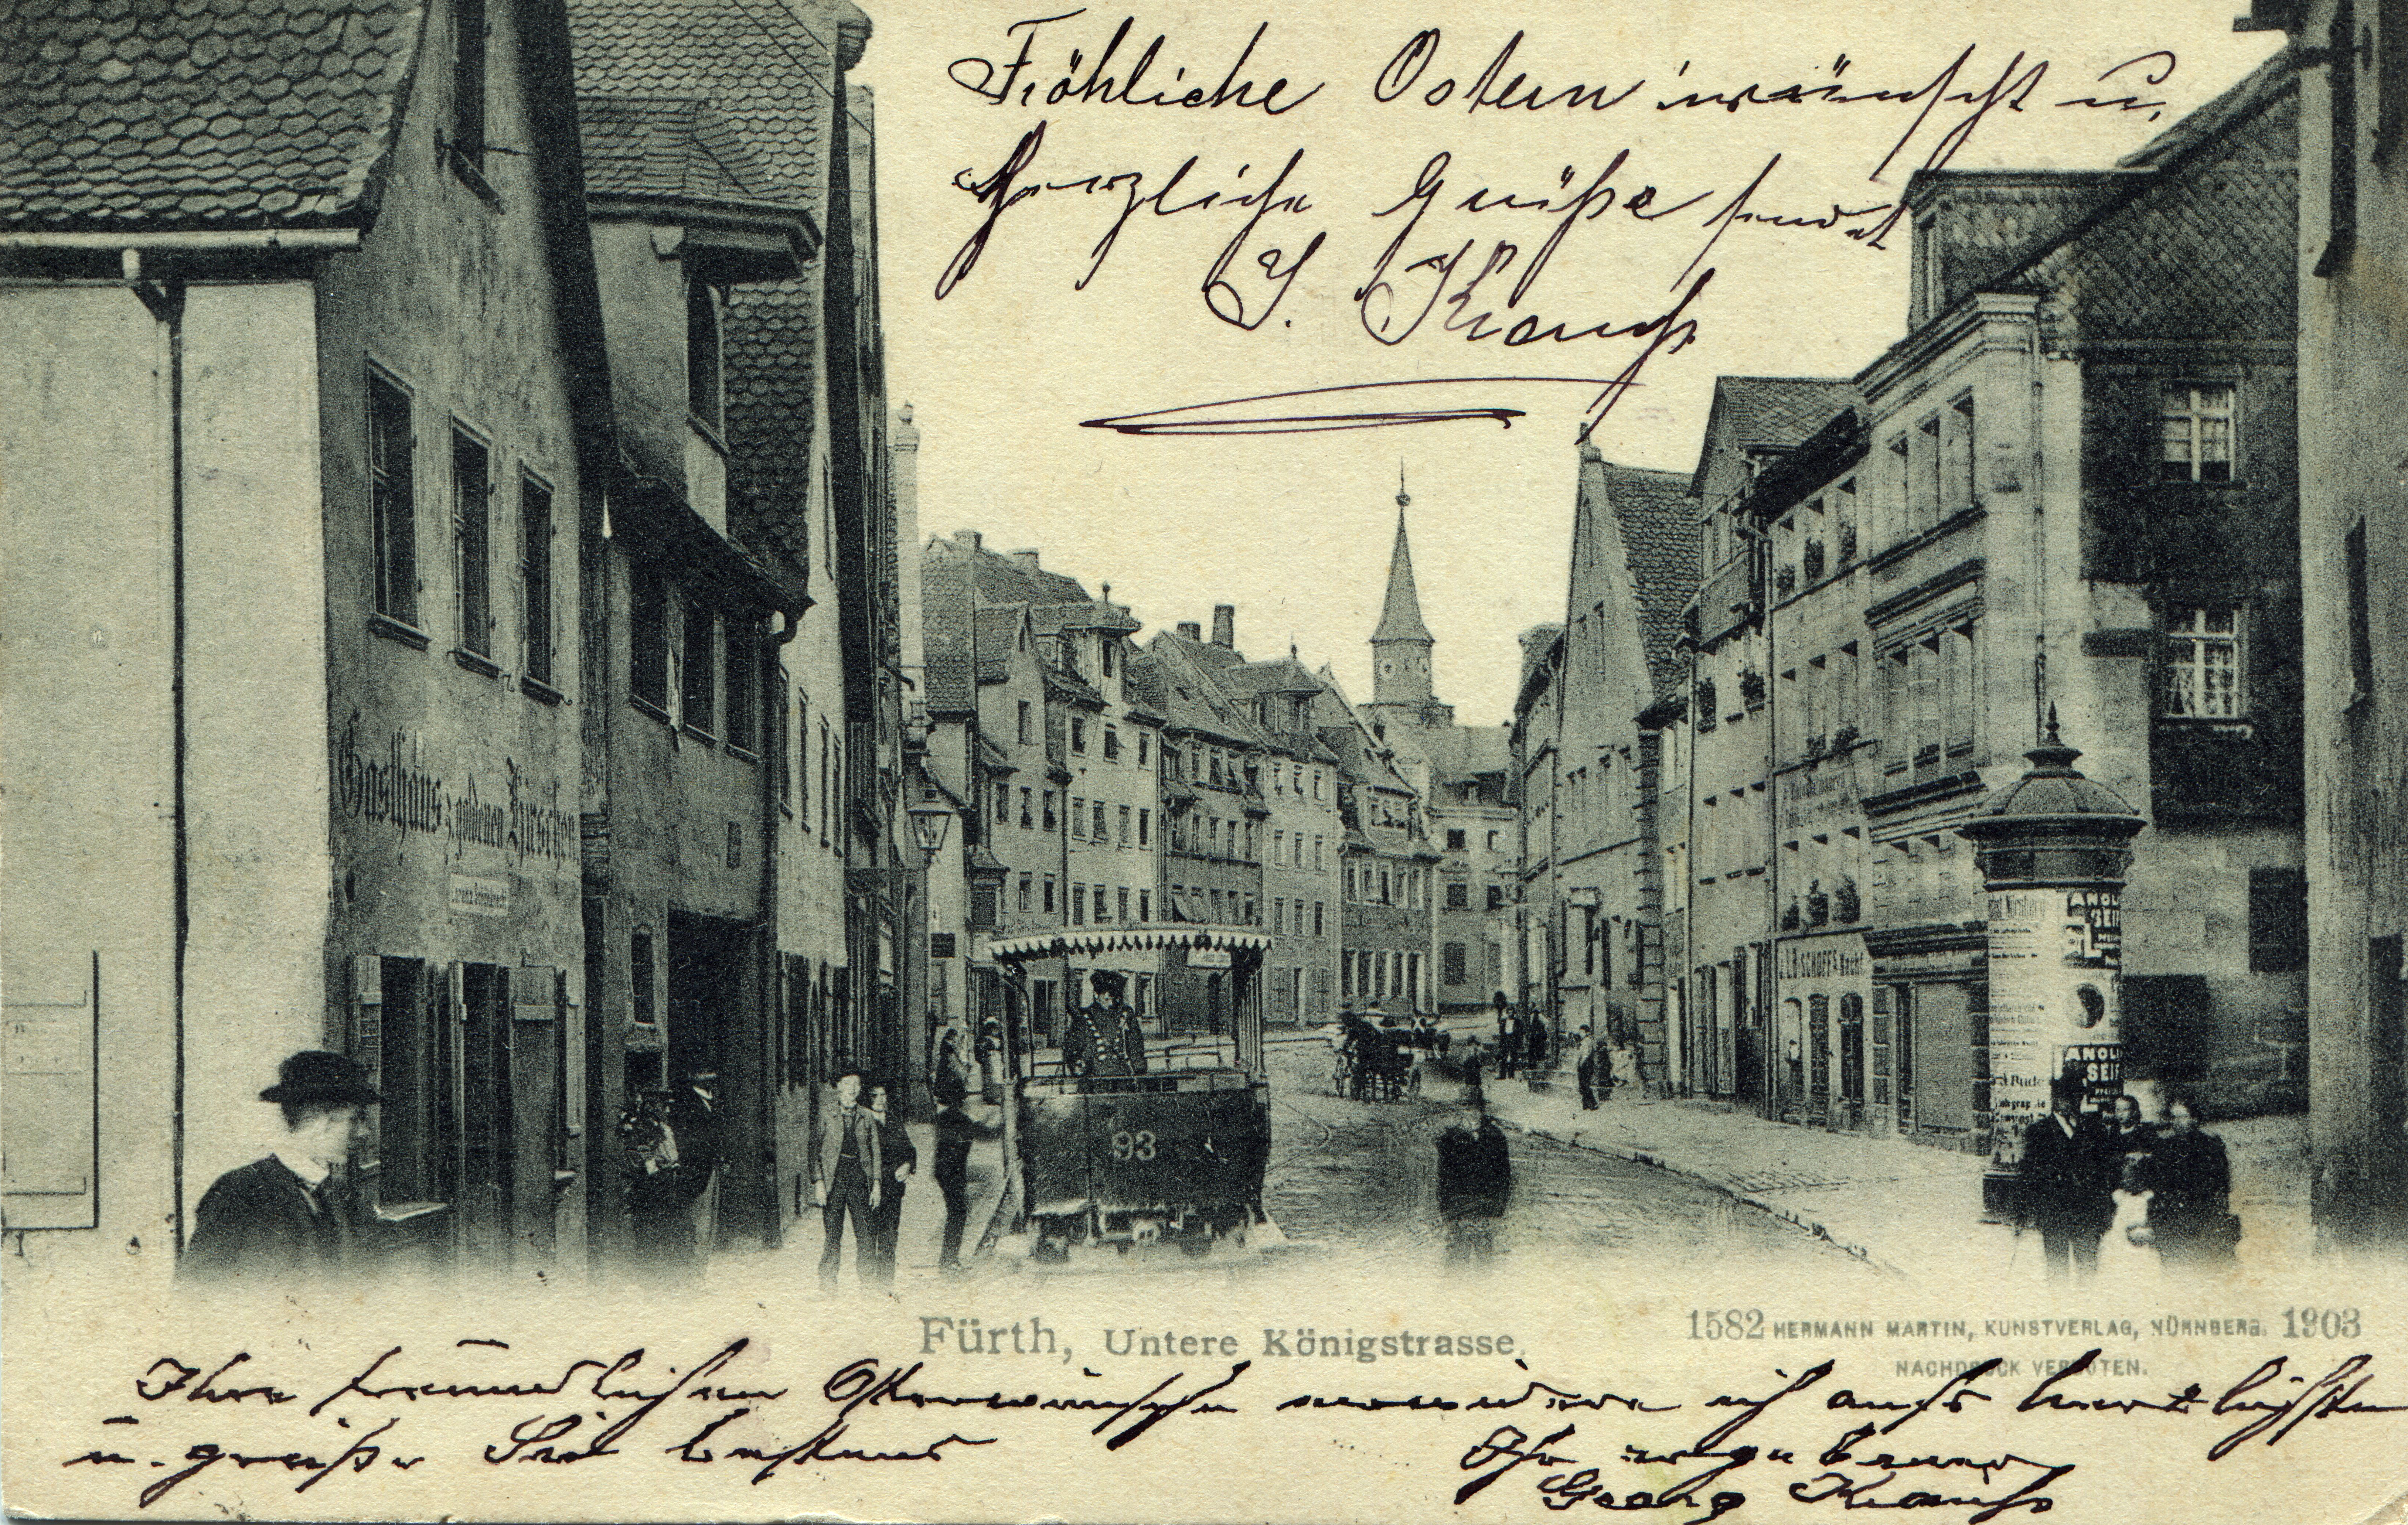 Fröhliche Ostern wünscht u.
Herzliche Grüße sendet
J. Krauß
Gasthaus z. goldenen Hirschen.
93
ANOL
SEIF
ANOL
SEIF
Fürth, Untere Königstrasse.
1582 HERMANN MARTIN, KUNSTVERLAG, NÜRNBERG. 1903
NACHDRUCK VERBOTEN.
Ihre freundlichen Osterwünsche erwidere ich aufs herzlichste
u. grüße Sie bestens
Ihr ergebener
Georg Krauß